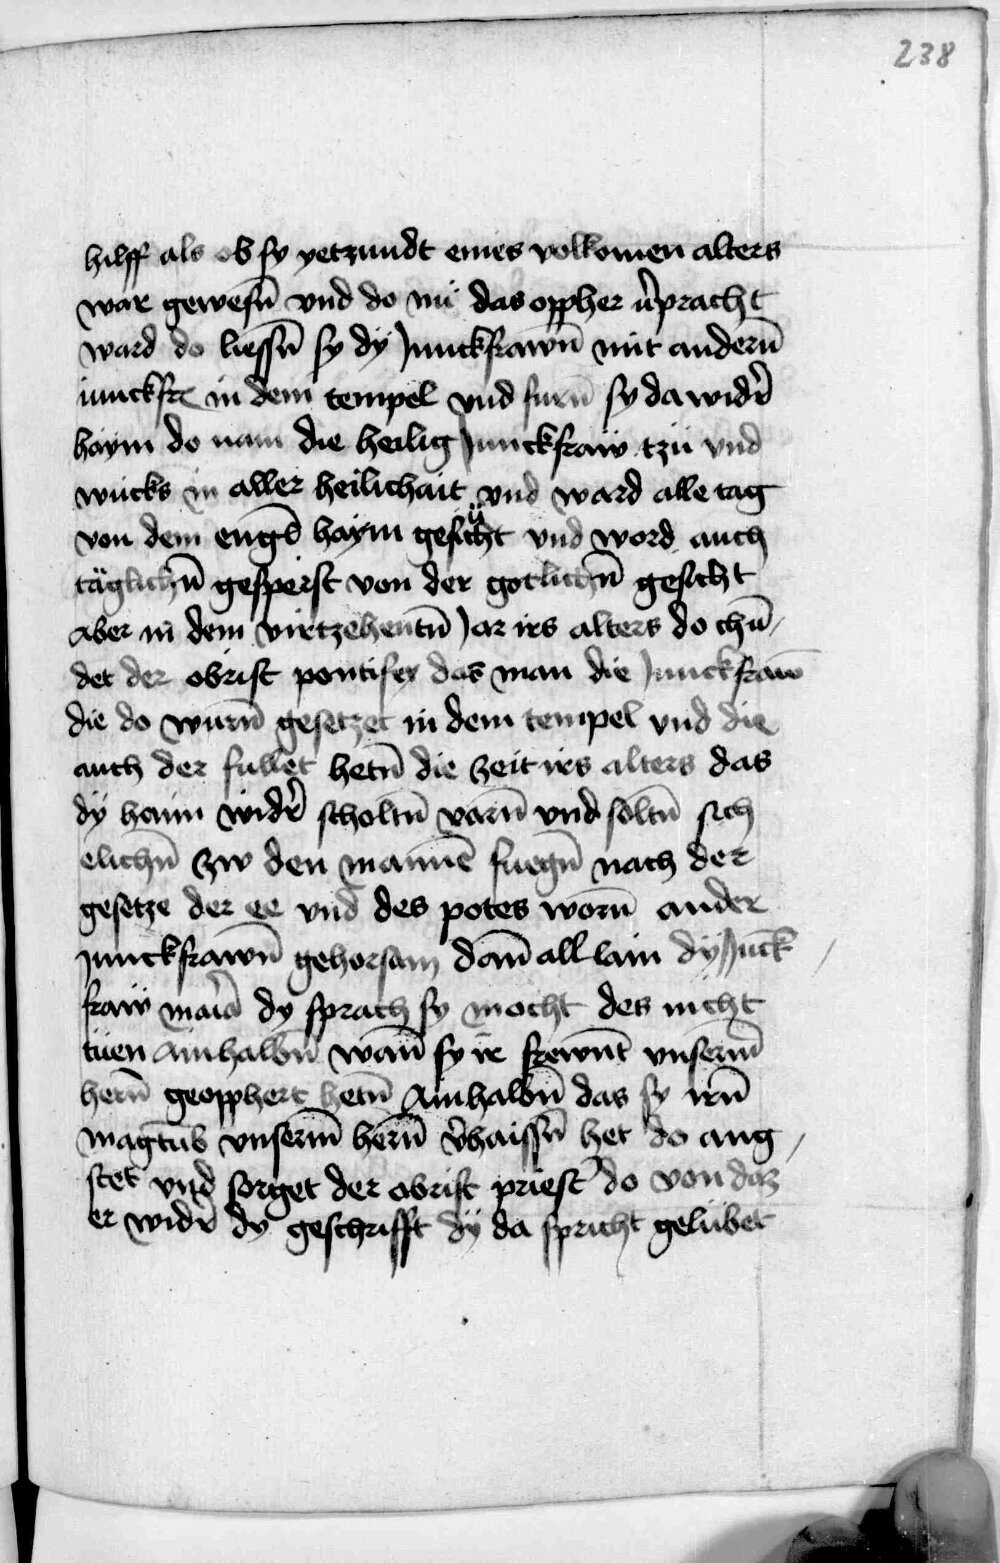 238
hilff als ob sy yetzundt eines volkomen alters
war gewesn̄ vnd do nu das oppher v̉pracht
ward do liessn̄ sy dy Junckfrawn̄ mit andern̄
iunckfr in dem tempel vnd furn̄ sy da wid̉
haym do nam die heilig Junckfraw tzu vnd
wuchs in aller heilichait vnd ward alle tag
von dem engl haym gesucht vnd word auch
täglichn̄ gespeist von der gotlichn̄ gesicht
Aber in dem virtzehentn̄ Jar irs alters do chū
det der obrist pontifex das man die Junckfraw̄
die do wurn̄ gesetzet in dem tempel vnd die
auch der fullet hetn̄ die zeit irs alters das
dÿ haim wid̉ scholtn̄ varn̄ vnd soltn̄ sich
elichn̄ zw den mannē fuegn̄ nach der
gesetze der ee vnd des potes worn̄ ander
Junckfrawn̄ gehorsam dan̄ all lain dÿ Juck
fraw maria dy sprach sy mocht des nicht
tuen Ainhalbn̄ wan̄ sy ir frewnt vnserm̄
hern̄ geopphert hetn̄ Ainhalbn̄ das sy irn̄
magtub vnserm̄ hern̄ v̉haissn̄ het do ang
stet vnd sorget der obrist priest̉ do von daz
er wid̉ dy geschrifft dÿ da spricht gelubet